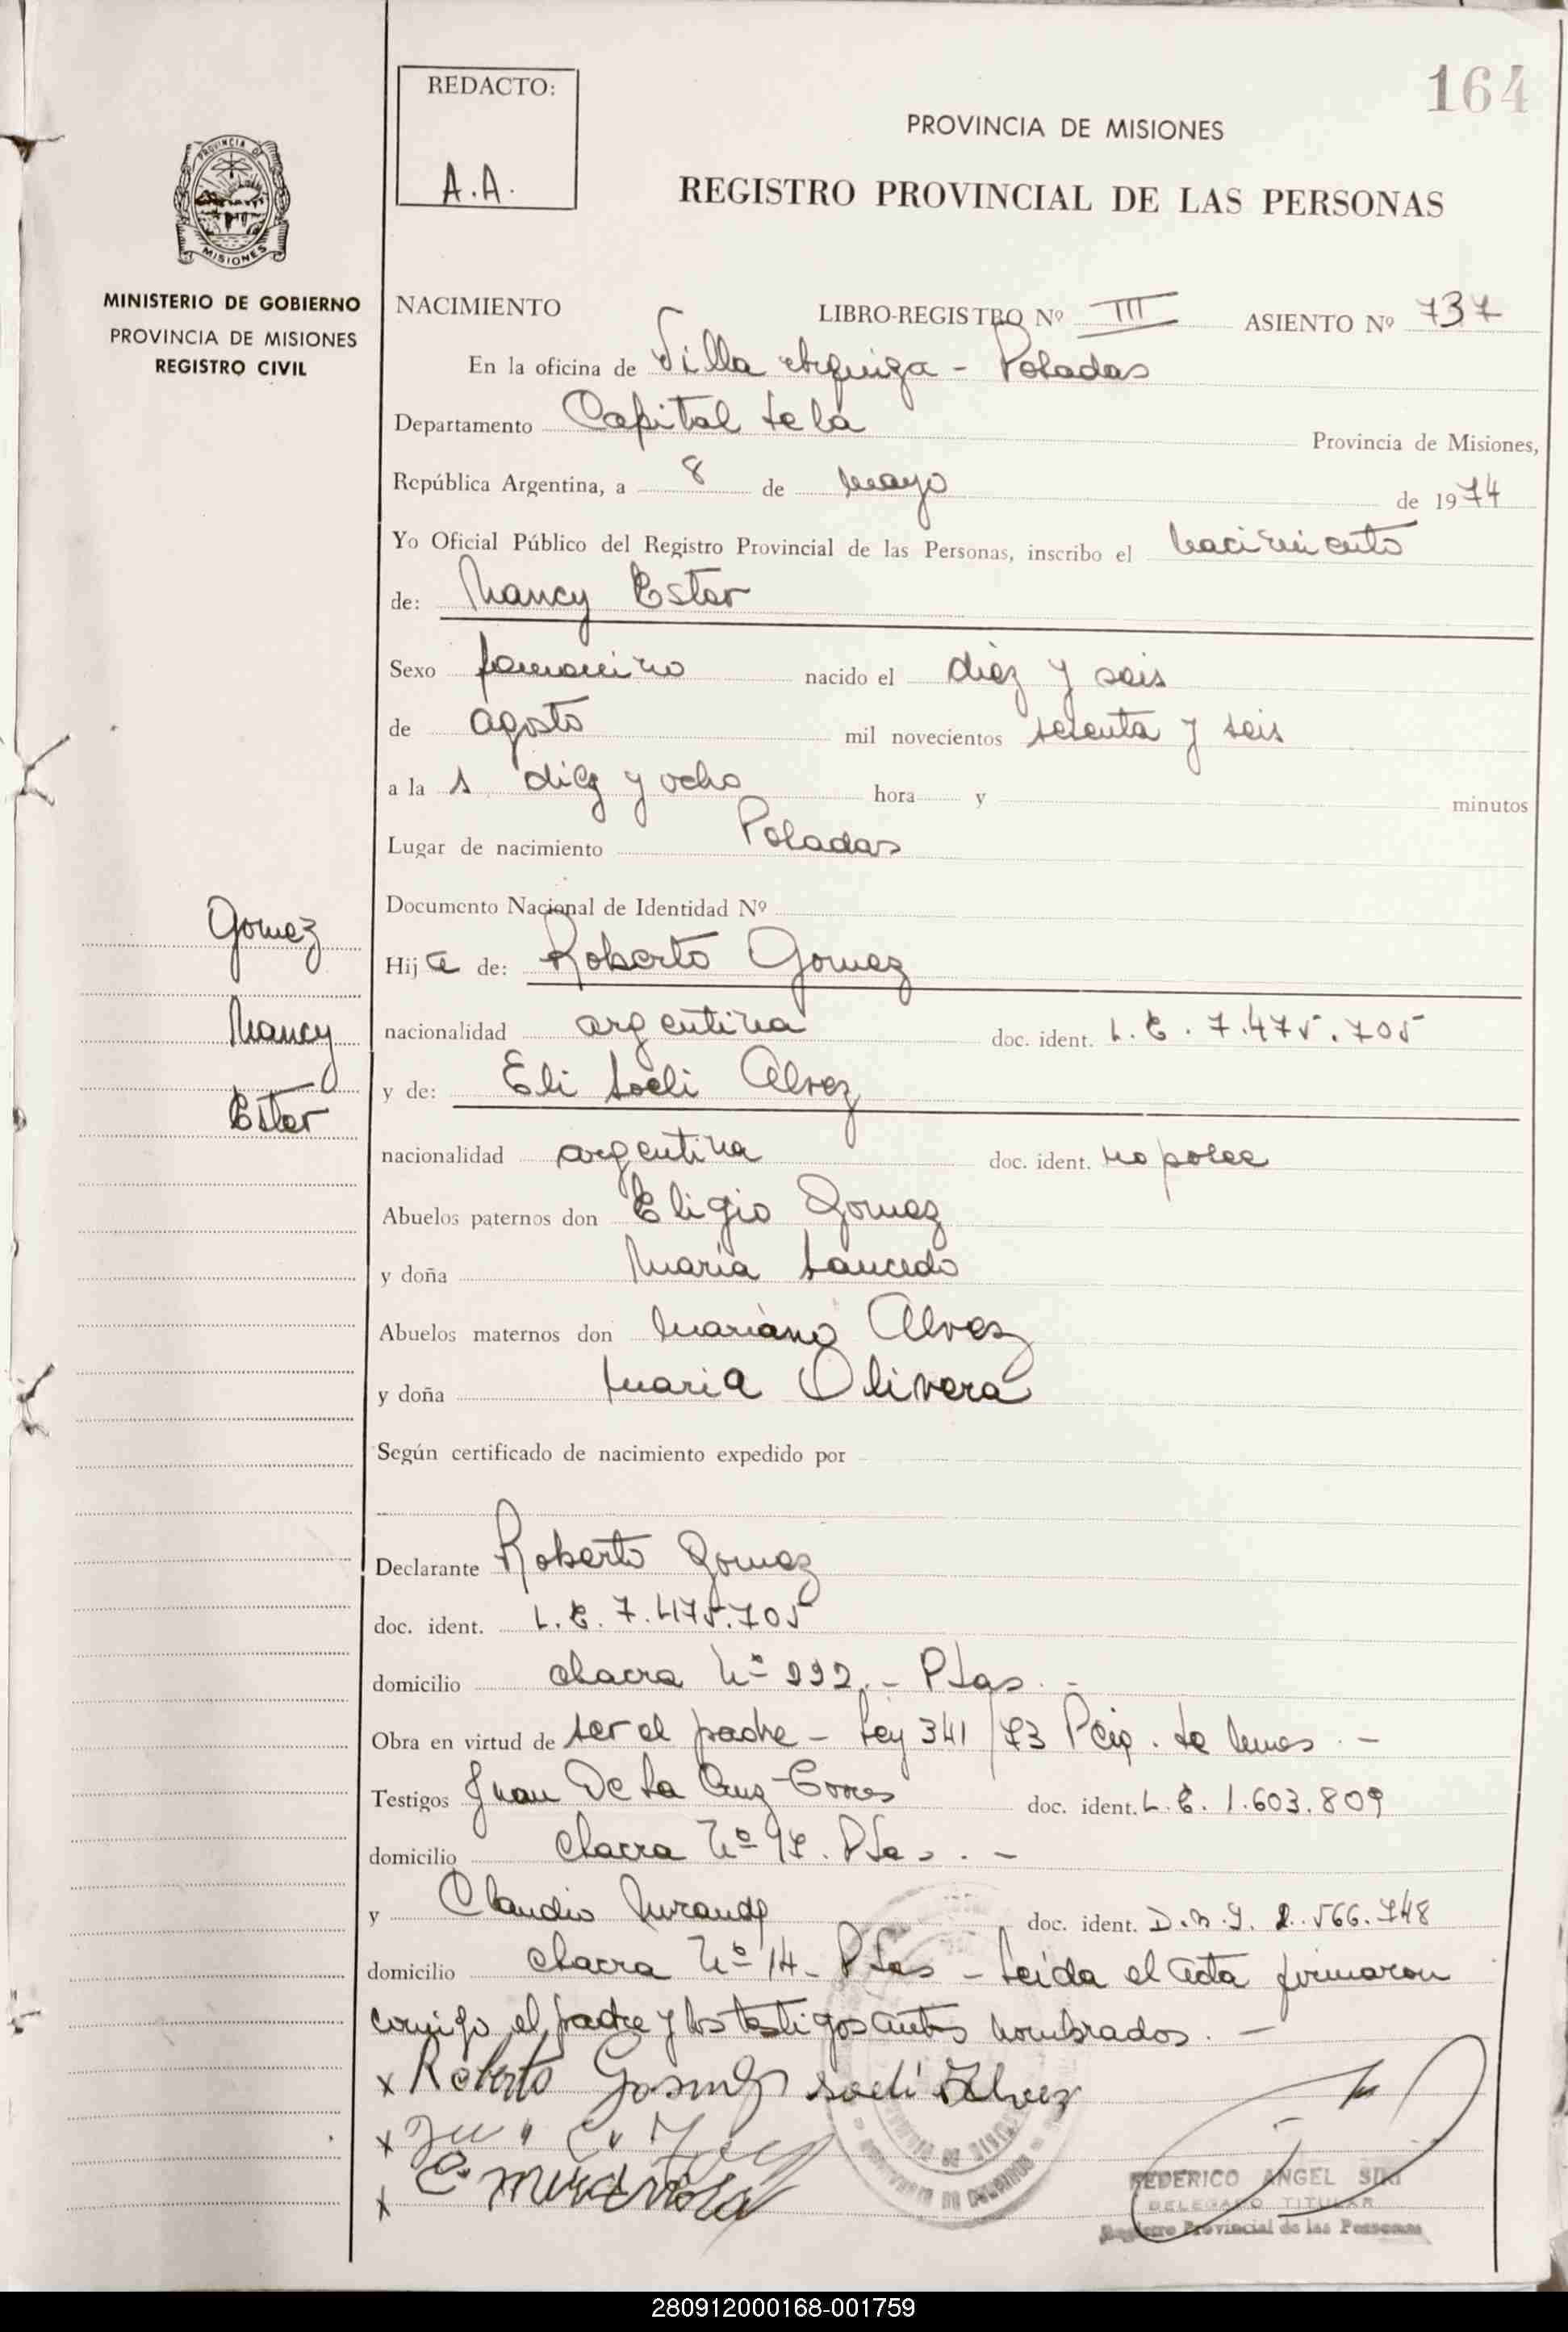 164
REDACTO:
A.A.
PROVINCIA DE MISIONES
REGISTRO PROVINCIAL DE LAS PERSONAS
PROVINCIA DE MISIONES
MINISTERIO DE GOBIERNO
PROVINCIA DE MISIONES
REGISTRO CIVIL
NACIMIENTO LIBRO-REGISTRO Nº III ASIENTO Nº 737
En la oficina de Villa Urquiza - Posadas
Departamento Capital de la Provincia de Misiones,
República Argentina, a 8 de mayo de 1974
Yo Oficial Público del Registro Provincial de las Personas, inscribo el nacimiento
de: Nancy Ester
Sexo femenino nacido el diez y seis
de agosto mil novecientos sesenta y seis
a la s diez y ocho hora y minutos
Lugar de nacimiento Posadas
Documento Nacional de Identidad Nº
Gomez
Hija de: Roberto Gomez
Nancy
nacionalidad argentina doc. ident. L.E. 7.475.705
y de: Eli Soeli Alvez
Ester
nacionalidad argentina doc. ident. no posee
Abuelos paternos don Eligio Gomez
y doña Maria Saucedo
Abuelos maternos don Mariano Alvez
y doña Maria Olivera
Según certificado de nacimiento expedido por
Declarante Roberto Gomez
doc. ident. L.E. 7.475.705
domicilio chacra Nº 992.- Pdas.-
Obra en virtud de ser el padre - Ley 341/73 Pcia. de Mnes.-
Testigos Juan De La Cruz doc. ident. L.E. 1.603.809
domicilio Chacra Nº 97. Pdas.-
y Claudio Miranda doc. ident. D.N.I. 2.566.748
domicilio chacra Nº 14- Pdas - Leida el acta firmaron
conmigo el padre y los testigos antes nombrados.-
x Roberto Gomez Soeli Alvez
x
x C. Miranda
FEDERICO ANGEL
DELEGADO TITULAR
Registro Provincial de las Personas
280912000168-001759